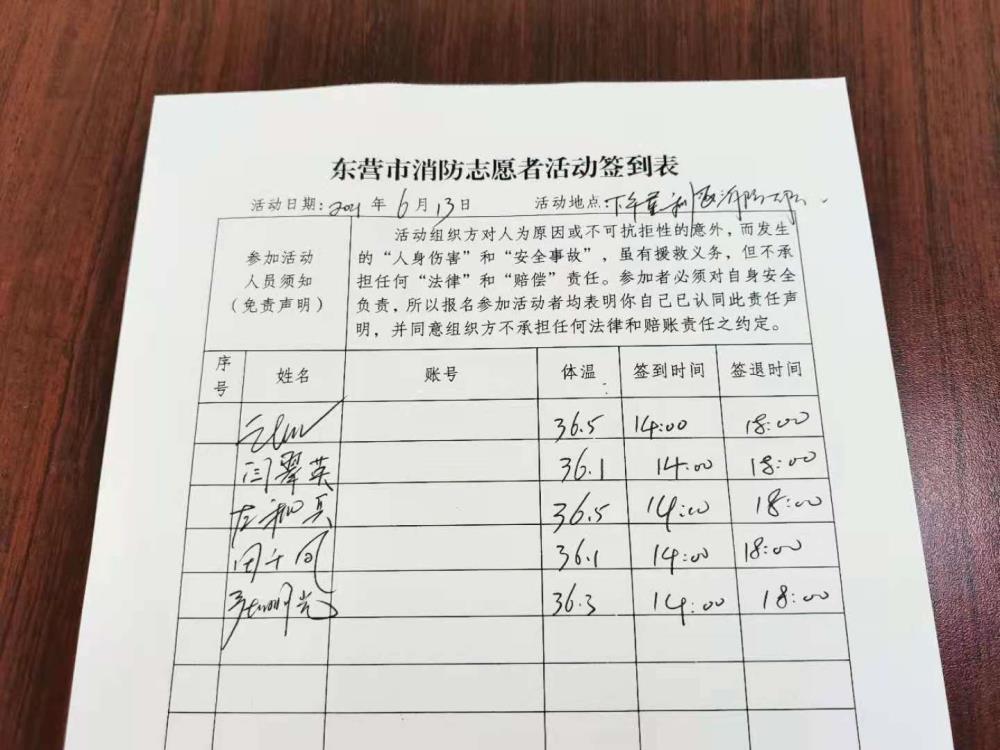 东营市消防志愿者活动签到表
活动日期:2021 年 6 月 13 日 活动地点:
参加活动人员须知(免责声明)
活动组织方对人为原因或不可抗拒性的意外,而发生
的“人身伤害”和“安全事故”,虽有援救义务,但不承
担任何“法律”和“赔偿”责任。参加者必须对自身安全
负责,所以报名参加活动者均表明你自己已认同此责任声
明,并同意组织方不承担任何法律和赔账责任之约定。
序号 姓名 账号 体温 签到时间 签退时间
36.5 14:00 18:00
闫翠英 36.1 14:00 18:00
36.5 14:00 18:00
36.1 14:00 18:00
36.3 14:00 18:00